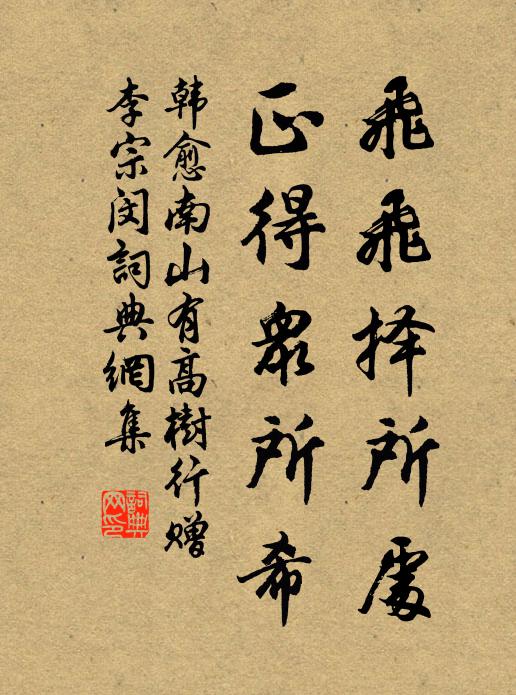 飛飛择所處
正得眾所希
韩愈南山有高樹行赠
李宗闵詞典網集
詞典
网印